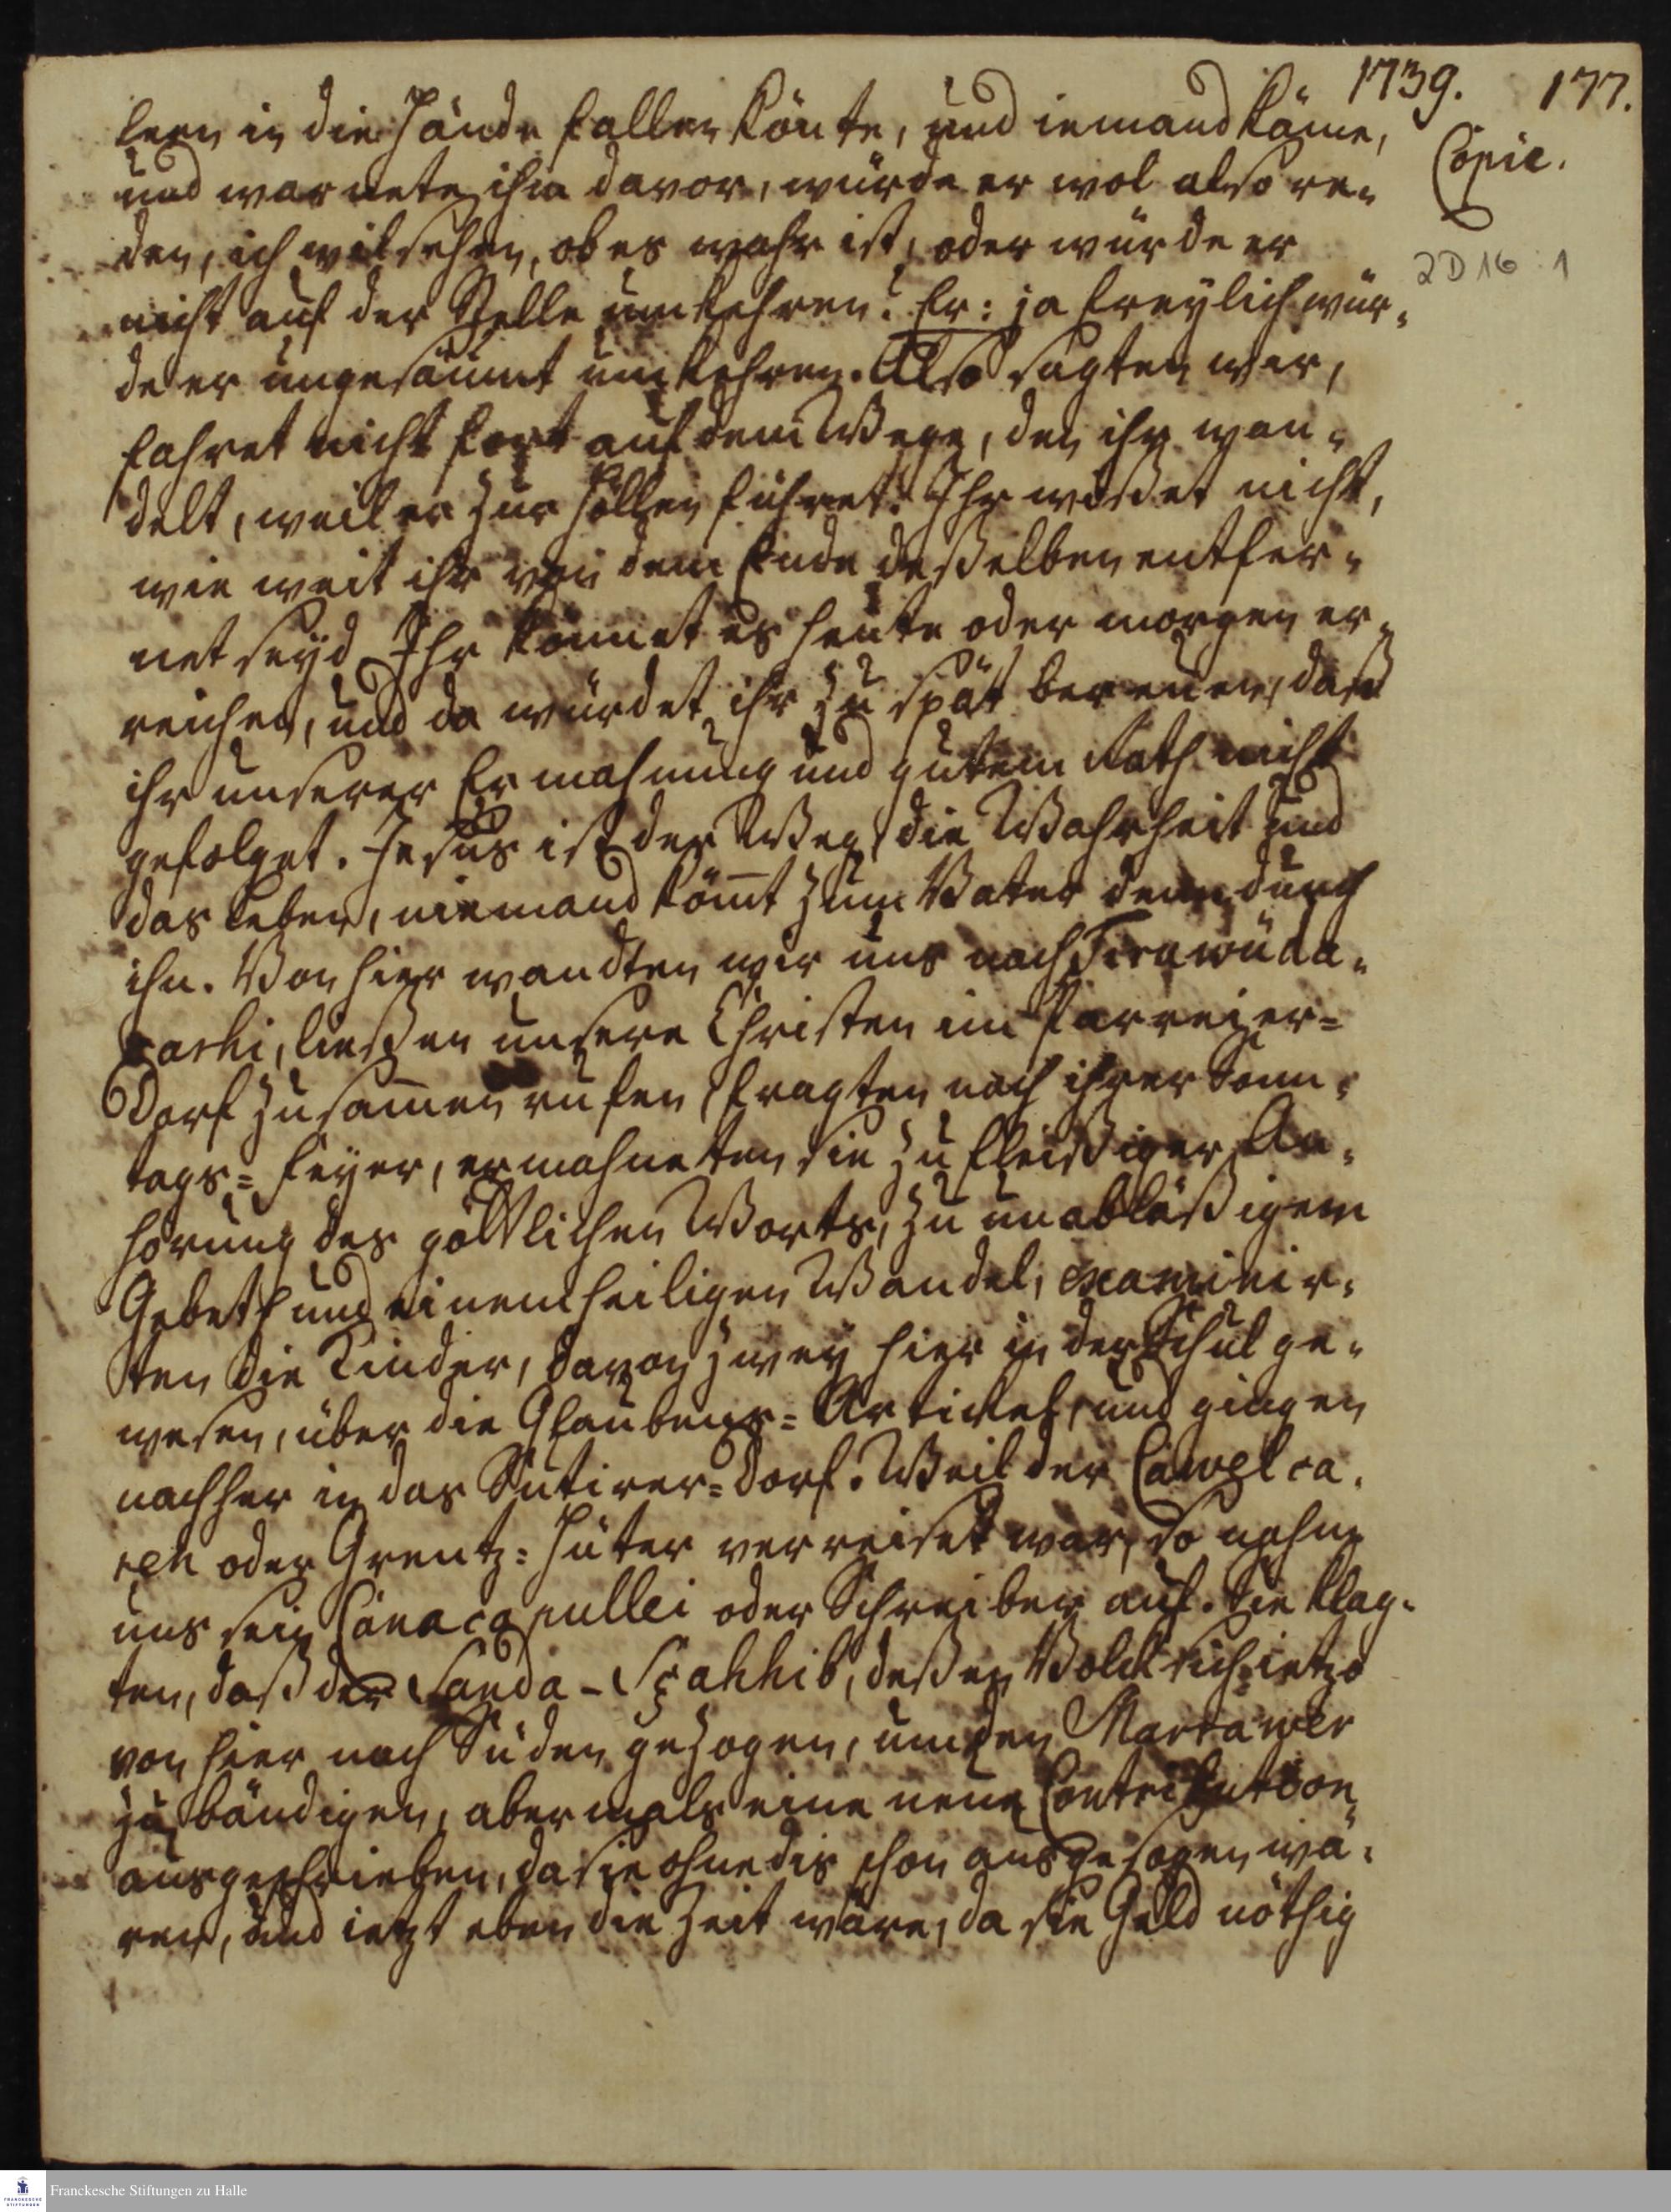 1739. 177.
Copie.
2 D 16 : 1
lern in die Hände fallen könte, und iemand käme,
und warnete ihn davor, würde er wol also re-
den, ich wil sehen, ob es wahr ist, oder würde er
nicht auf der Stelle umkehren? Er: ja freylich wür-
de er ungesäumt umkehren. Also sagten wir,
fahret nicht fort auf dem Wege, den ihr wan-
delt, weil er zur Höllen führet. Ihr wisset nicht,
wie weit ihr von dem Ende deßelben entfer-
net seyd. Ihr könnet es heute oder morgen er-
reichen, und da würdet ihr zu spät bereuen, daß
ihr unserer Ermahnung und gutem Rath nicht
gefolget. Jesus ist der Weg, die Wahrheit und
das Leben, niemand kömt zum Vater denn durch
ihn. Von hier wandten wir uns nach Tirawüda-
cashi, ließen unsere Christen im Parreier-
Dorf zusamen rufen, fragten nach ihrer Sonn-
tags-Feyer, ermahneten sie zu fleißiger An-
hörung des göttlichen Worts, zu unabläßigem
Gebeth und einem heiligen Wandel, examinir-
ten die Kinder, davon zwey hier in der Schul ge-
wesen, über die Glaubens-Artickel, und gingen
nachher in das Sutirer-Dorf. Weil der Cawelca-
ren oder Grentz-Hüter verreiset war, so nahm
uns sein Canacapullei oder Schreiber auf. Sie klag-
ten, daß der Sanda-Szahhib, deßen Volck sich ietzo
von hier nach Süden gezogen, um den Marrawer
zu bändigen, abermals eine neue Contribution
ausgeschrieben, da sie ohnedis schon ausgesogen wä-
ren, und ietzt eben die Zeit wäre, da sie Geld nöthig
Franckesche Stiftungen zu Halle